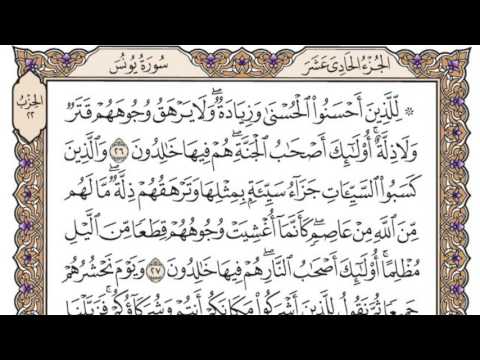 الجُزْءُ الحَادِى عَشَرَ
سُورَةُ يُونُسَ
الحِزْبُ
٢٢
۞ لِّلَّذِينَ أَحْسَنُوا۟ ٱلْحُسْنَىٰ وَزِيَادَةٌ ۖ وَلَا يَرْهَقُ وُجُوهَهُمْ قَتَرٌ
وَلَا ذِلَّةٌ ۚ أُو۟لَٰٓئِكَ أَصْحَٰبُ ٱلْجَنَّةِ ۖ هُمْ فِيهَا خَٰلِدُونَ ٢٦ وَٱلَّذِينَ
كَسَبُوا۟ ٱلسَّيِّـَٔاتِ جَزَآءُ سَيِّئَةٍۭ بِمِثْلِهَا وَتَرْهَقُهُمْ ذِلَّةٌ ۖ مَّا لَهُم
مِّنَ ٱللَّهِ مِنْ عَاصِمٍ ۖ كَأَنَّمَآ أُغْشِيَتْ وُجُوهُهُمْ قِطَعًا مِّنَ ٱلَّيْلِ
مُظْلِمًا ۚ أُو۟لَٰٓئِكَ أَصْحَٰبُ ٱلنَّارِ ۖ هُمْ فِيهَا خَٰلِدُونَ ٢٧ وَيَوْمَ نَحْشُرُهُمْ
جَمِيعًا ثُمَّ نَقُولُ لِلَّذِينَ أَشْرَكُوا۟ مَكَانَكُمْ أَنتُمْ وَشُرَكَآؤُكُمْ ۚ فَزَيَّلْنَا